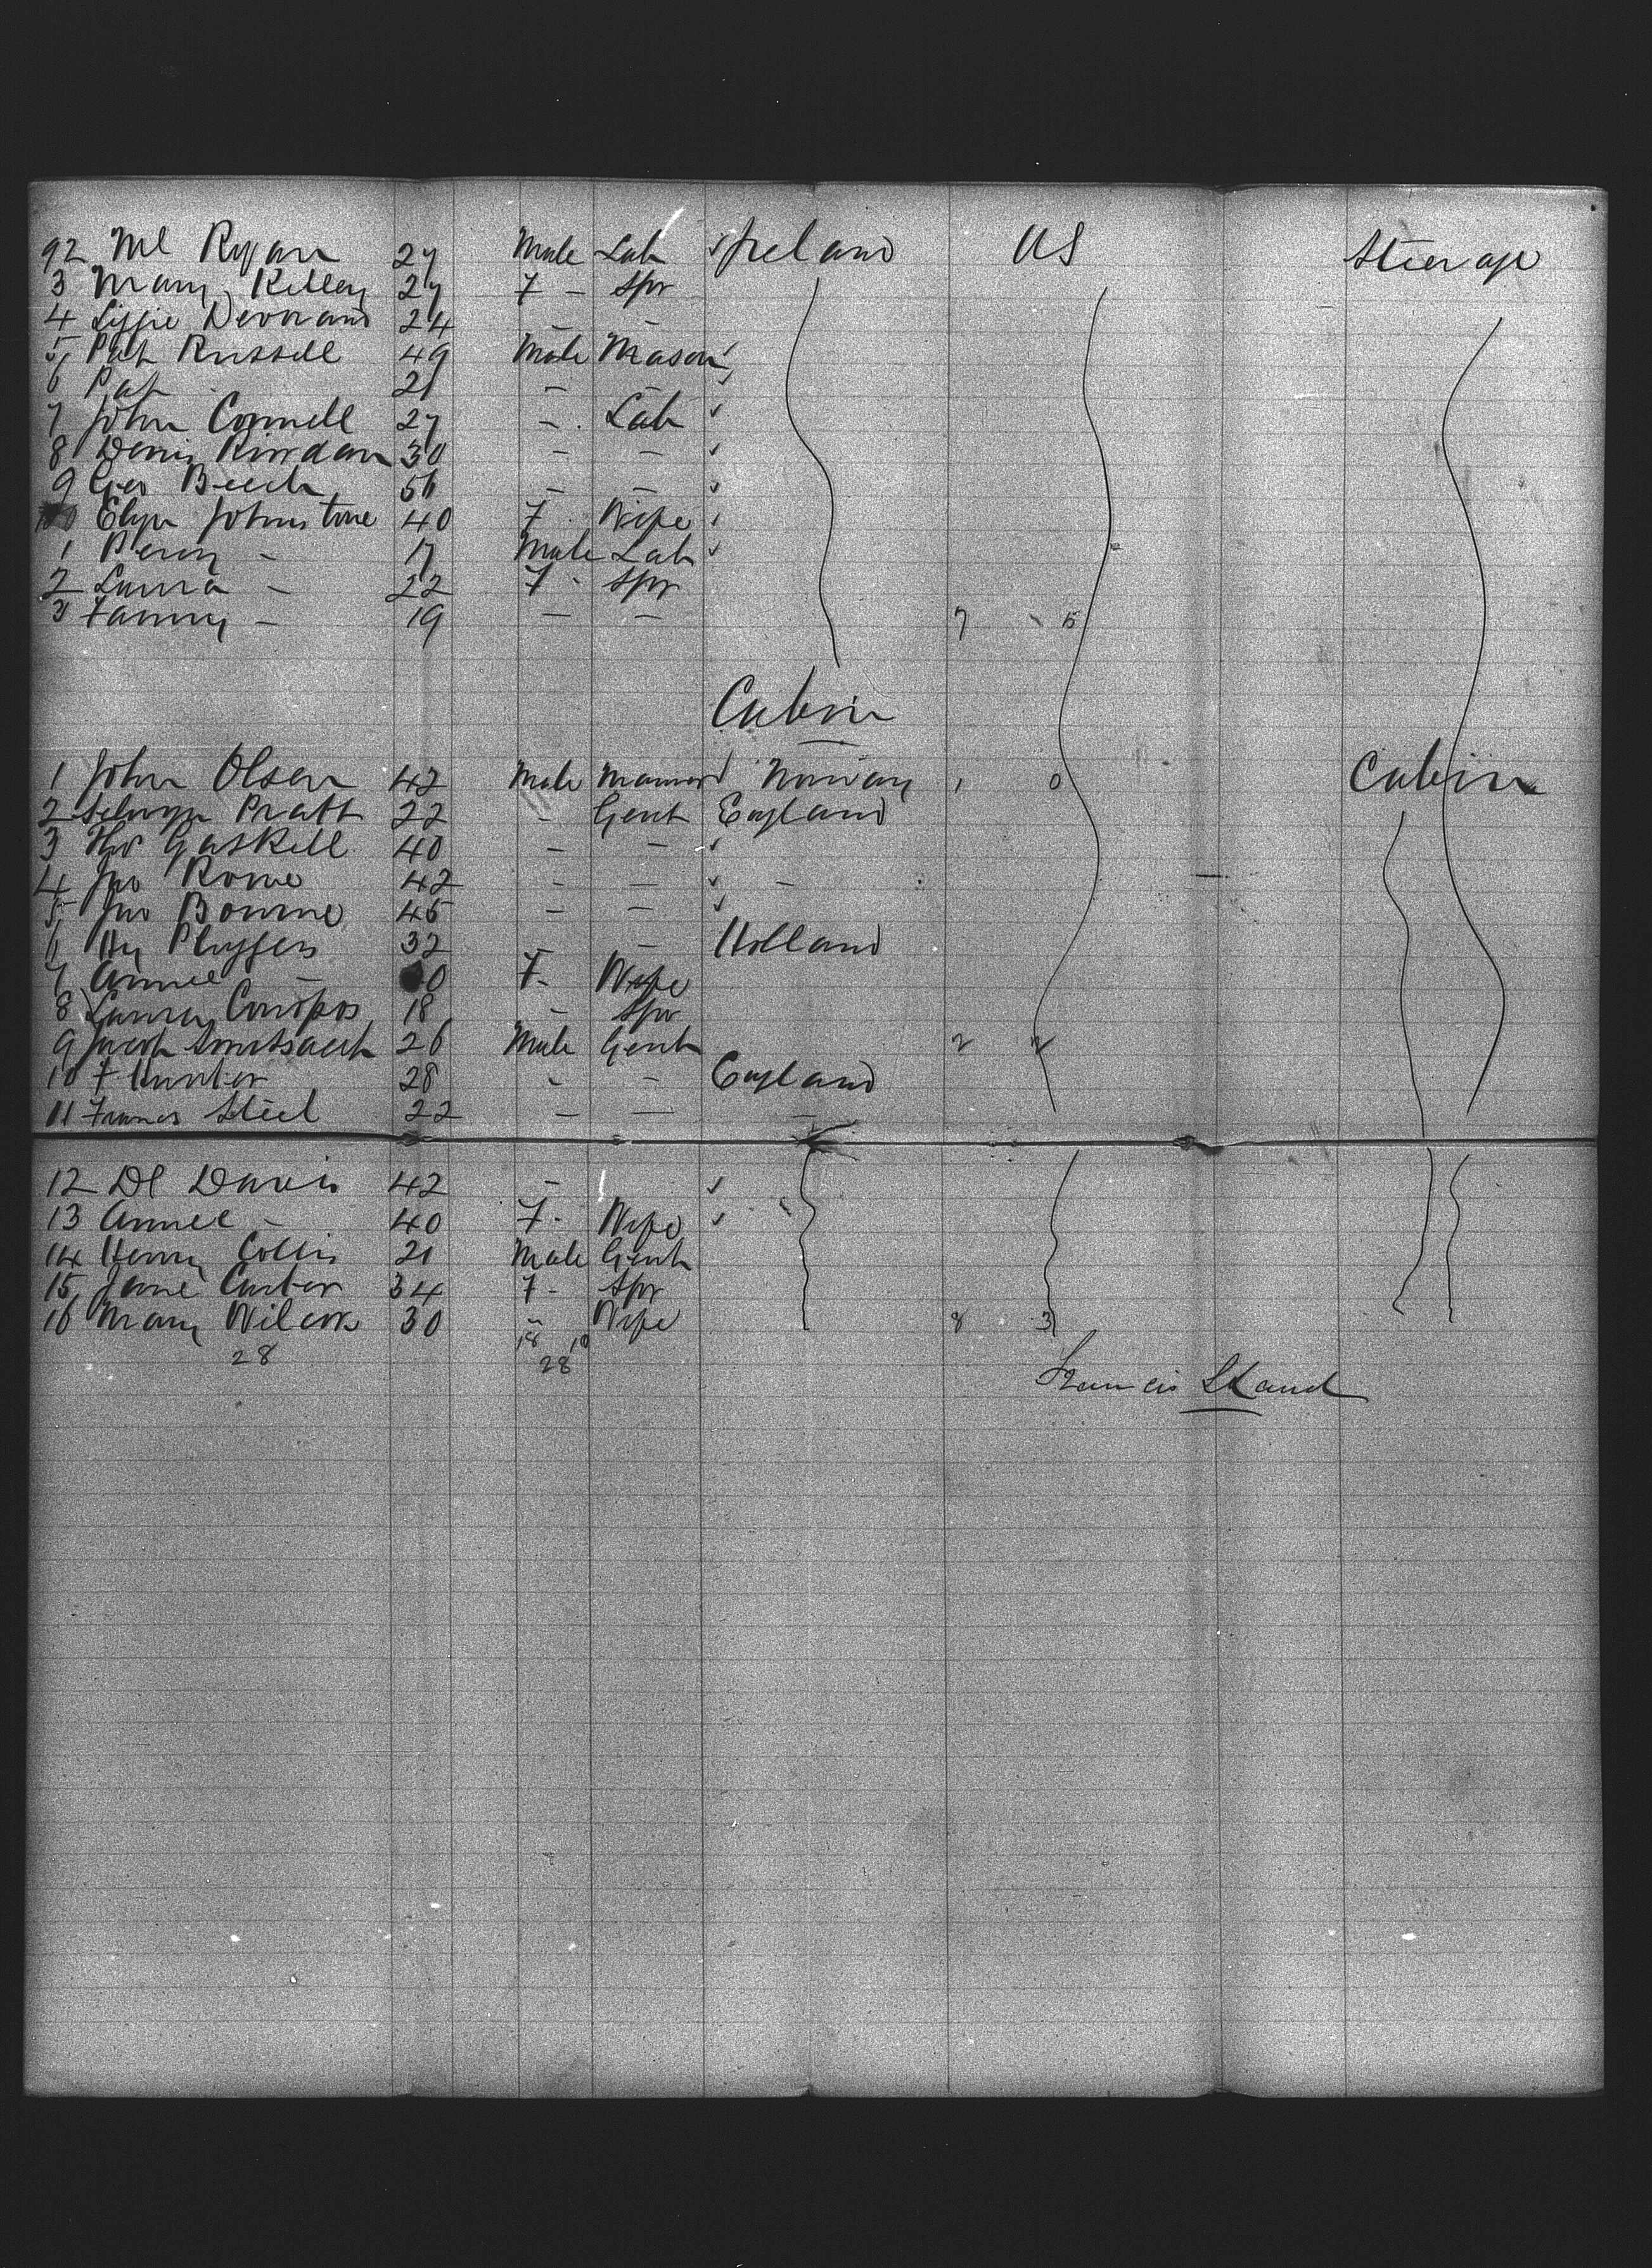 92 Ml Ryan 27 Male Lab Ireland US Steerage
3 Mary Killey 27 F - Spr
4 Lizzie 24 - -
5 Pat Russell 49 Male Mason
6 Pat - 21 - -
7 John Connell 27 - Lab
8 Denis Riordan 30 - -
9 Geo Beech 56 - -
100 Johnstone 40 F - Wife
1 Percy - 17 Male Lab
2 Laura - 22 F - Spr
3 Fanny - 19 - - 7 5
Cabin
1 John Olsen 42 Male Norway 1 0 Cabin
2 Selwyn Pratt 22 - Gent England
3 Tho Gaskell 40 - -
4 Jno Rowe 42 - - -
5 Jno Bourne 45 - -
6 Hy 32 - - Holland
7 Annie - F - Wife
8 18 - Spr
9 Jacob 26 Male Gent 2 2
10 F Hunter 28 - - England
11 Frances Steel 22 - - -
12 Dl Davis 42 -
13 Annie - 40 F - Wife
14 Henry Collis 21 Male Gent
15 Jane Carter 34 F - Spr
16 Mary Wilcox 30 - Wife 8 3
28 18 10
28
Francis